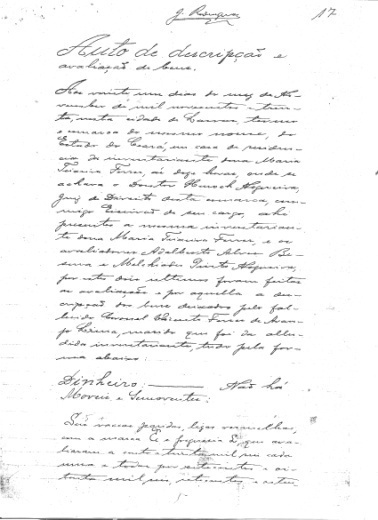 17
Auto de descripção e
avaliação de bens.
Aos vinte um dias do mez de No-
vembro de mil novecentos e trin-
ta, nesta cidade de Lavras, termo
e comarca do mesmo nome, do
Estado do Ceará, em casa de residen-
cia da inventariante dona Maria
Teixeira Ferrer, ás doze horas, onde se
achava o Doutor Nogueira,
Juiz de Direito desta comarca, com-
migo Escrivão de seu cargo, ahi
presentes a mesma inventarian-
te dona Maria Teixeira Ferrer, e os
avaliadores Adalberto Alves
e Pinto Nogueira,
por estes dois ultimos foram feitas
as avaliações e por aquella a des-
cripção dos bens deixados pelo fal-
lecido Coronel Vicente Ferrer de Arau-
jo marido que foi da allu-
dida inventariante, tudo pela for-
ma abaixo:
Dinheiro: Não há
Moveis e Semoventes:
Seis vaccas paridas,
com a marca que ava-
liaram a cento e trinta mil reis cada
uma e todas por setecentos e oi-
tenta mil reis, setecentos e oiten